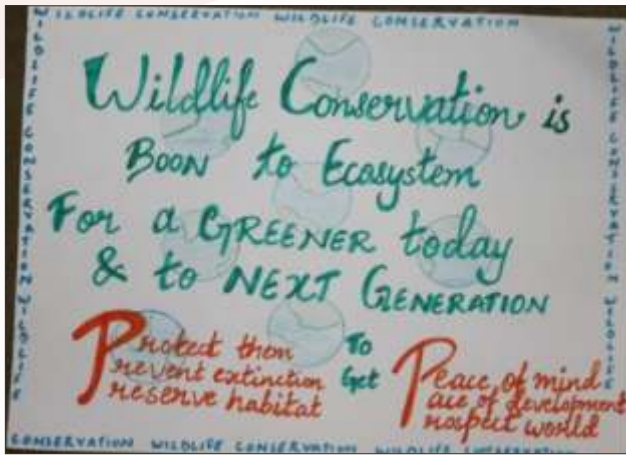 WILDLIFE CONSERVATION WILDLIFE CONSERVATION
WILDLIFE CONSERVATION WILDLIFE
WILDLIFE CONSERVATION WILDLIFE
Wildlife Conservation is
BOON to Ecosystem
For a GREENER today
& to NEXT GENERATION
Protect them
Prevent extinction
Preserve habitat
To
Get
Peace of mind
Pace of development
Prospect world
CONSERVATION WILDLIFE CONSERVATION WILDLIFE CONSERVATION